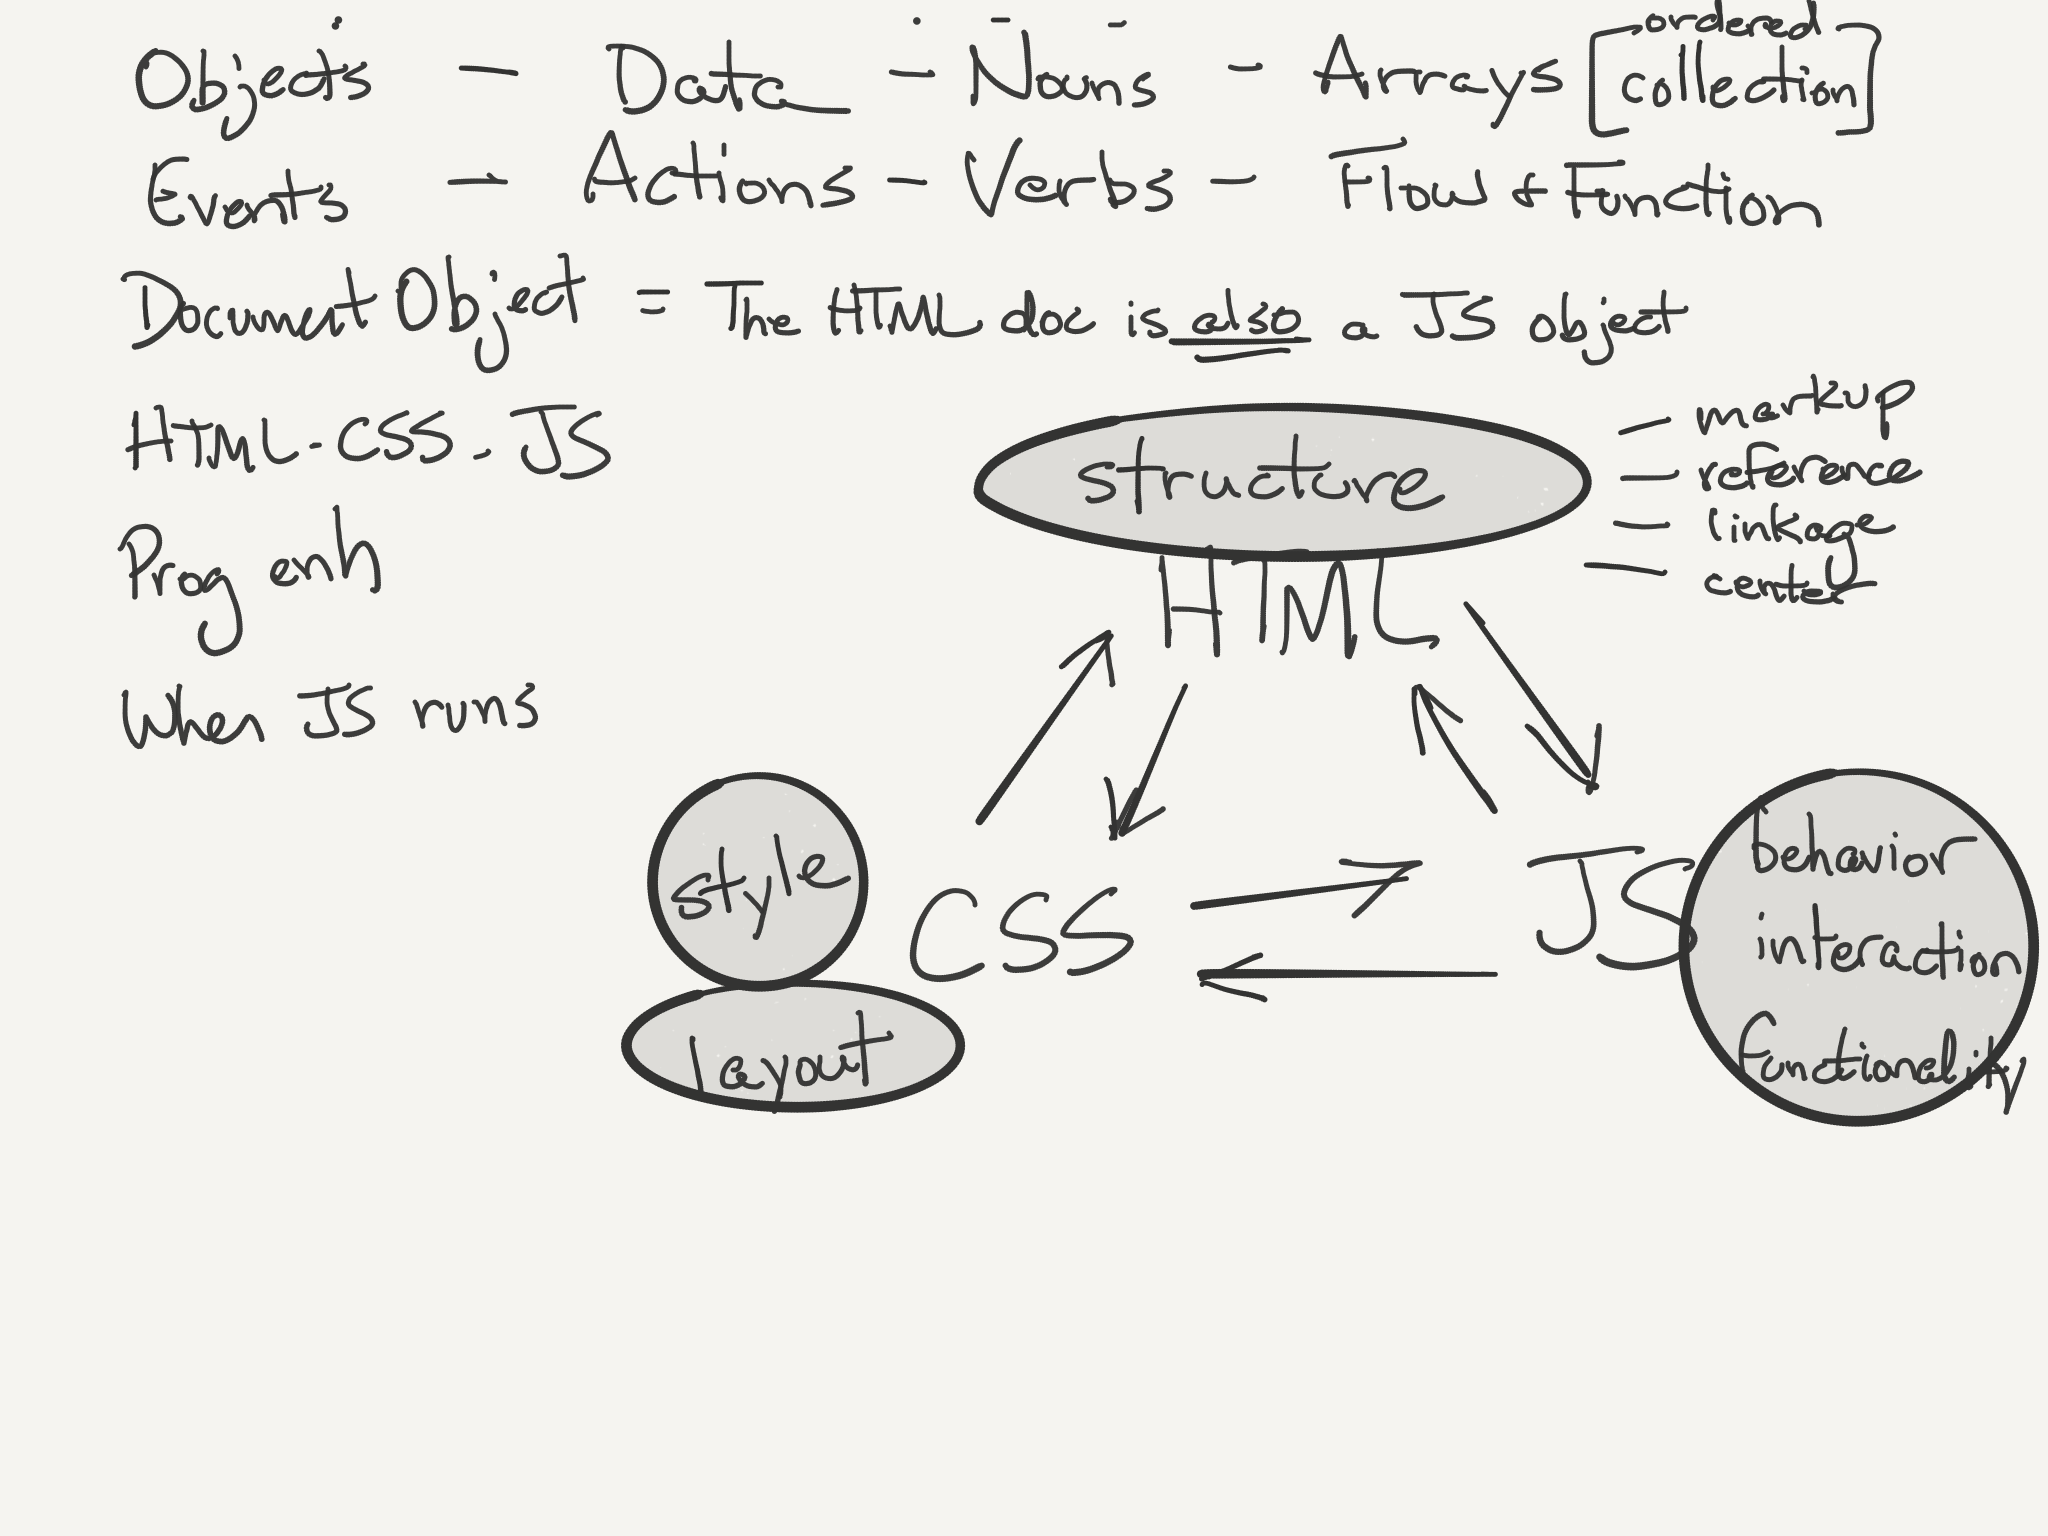 Objects - Data - Nouns - Arrays [ordered collection]
Events - Actions - Verbs - Flow & Function
Document Object = The HTML doc is also a JS object
HTML - CSS - JS
Prog enh
When JS runs
structure
- markup
- reference
- linkage
- center
HTML
style
layout
CSS
JS
behavior
interaction
functionality